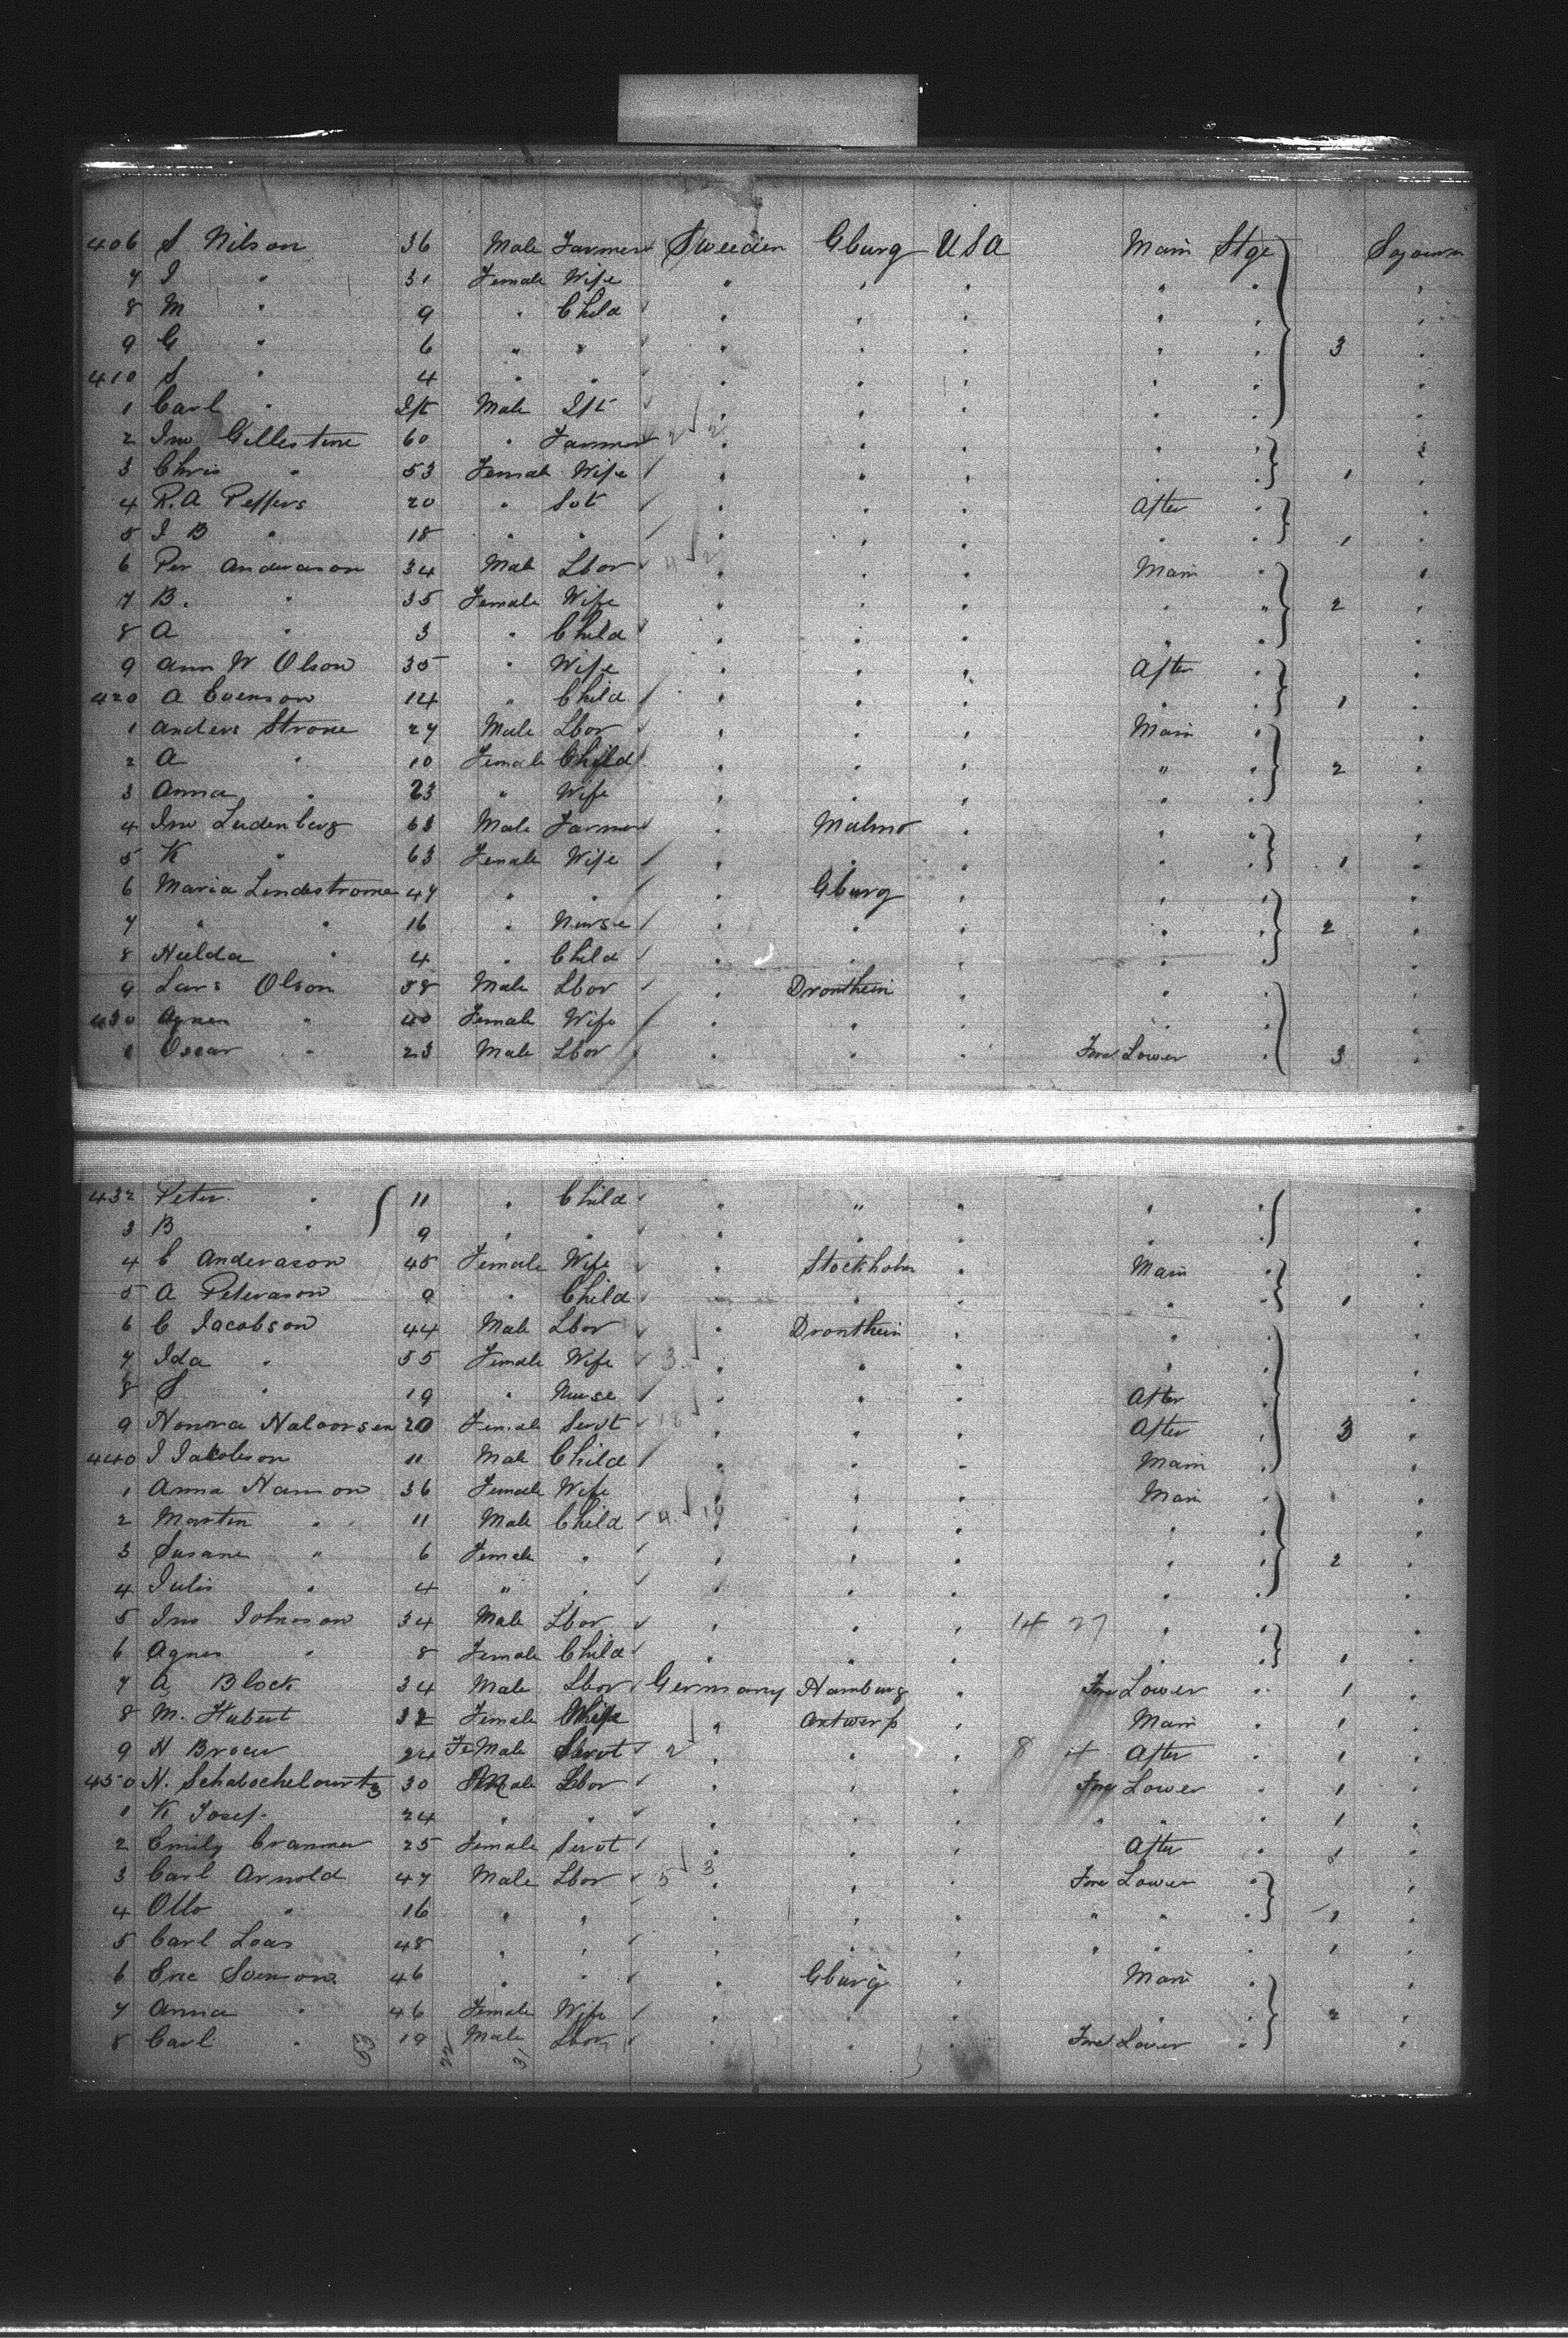 406 S Nilson 36 Male Farmer Sweeden Gburg USA Main Stge Sojourn
7 I " 31 Female Wife " " " " " "
8 M " 9 " Child " " " " " "
9 G " 6 " " " " " " " 3 "
410 S " 4 " " " " " " " "
1 Carl " Ift Male Ift " " " " " "
2 Jno Gillestine 60 " Farmer " " " " " "
3 Chris " 53 Female Wife " " " " " 1 "
4 R. A Peffers 20 " " " " After " "
5 I B " 18 " " " " " " " 1 "
6 Per Anderason 34 Male Lbor " " " Main " "
7 B. " 35 Female Wife " " " " " 2 "
8 A " 3 " Child " " " " " "
9 Ann W Olson 35 " Wife " " " After " "
420 A Evenson 14 " Child " " " " " 1 "
1 Anders Strone 27 Male Lbor " " " Main " "
2 A " 10 Female Child " " " " " 2 "
3 Anna " 23 " Wife " " " " " "
4 Jno Ludenberg 63 Male Farmer " Malmo " " " "
5 K " 63 Female Wife " " " " " 1 "
6 Maria Lindestrome 47 " " " Gburg " " " "
7 " " 16 " Nurse " " " " " 2 "
8 Hulda " 4 " Child " " " " " "
9 Lars Olson 38 Male Lbor " Dronthein " " " "
430 Agnes " 40 Female Wife " " " " " "
1 Oscar " 23 Male Lbor " " " Fore Lower " 3 "
432 Peter " 11 " Child " " " " " "
3 B " 9 " " " " " " " "
4 C Anderason 45 Female Wife " Stockholm " Main " "
5 A Peterason 9 " Child " " " " " 1 "
6 C Jacobson 44 Male Lbor " Dronthein " " " "
7 Ida " 55 Female Wife 3 " " " " " "
8 S " 19 " Nurse " " " After " "
9 Honora Haloorsen 20 Female Servt 18 " " " After " 3 "
440 I Jakobson 11 Male Child " " " Main " "
1 Anna Hanson 36 Female Wife " " " Main " "
2 Martin " 11 Male Child 4 19 " " " " " "
3 Susane " 6 Female " " " " " " 2 "
4 Julis " 4 " " " " " " " "
5 Jno Johnson 34 Male Lbor " " " 14 27 " " "
6 Agnes " 8 Female Child " " " " " 1 "
7 A Block 34 Male Lbor Germany Hamburg " Fore Lower " 1 "
8 M. Hubert 32 Female Wife " Antwerp " Main " 1 "
9 H Broew 24 FeMale Servt 2 " " " 8 After " 1 "
450 N. 30 Male Lbor " " " Fore Lower " 1 "
1 K Josef 24 " " " " " " " " 1 "
2 Emily Cranmer 25 Female Servt " " " After " 1 "
3 Carl Arnold 47 Male Lbor 5 3 " " " Fore Lower " "
4 Otto " 16 " " " " " " " " 1 "
5 Carl Loas 48 " " " " " " " " 1 "
6 Eric Svenson 46 " " " Gburg " Main " "
7 Anna " 46 Female Wife " " " " " 2 "
8 Carl " 19 Male Lbor " " " Fore Lower " "
53 22 31